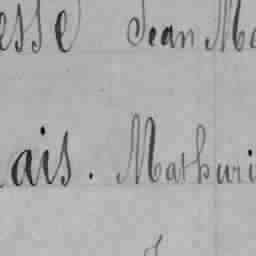 esse Jean Ma
ais. Mathuri